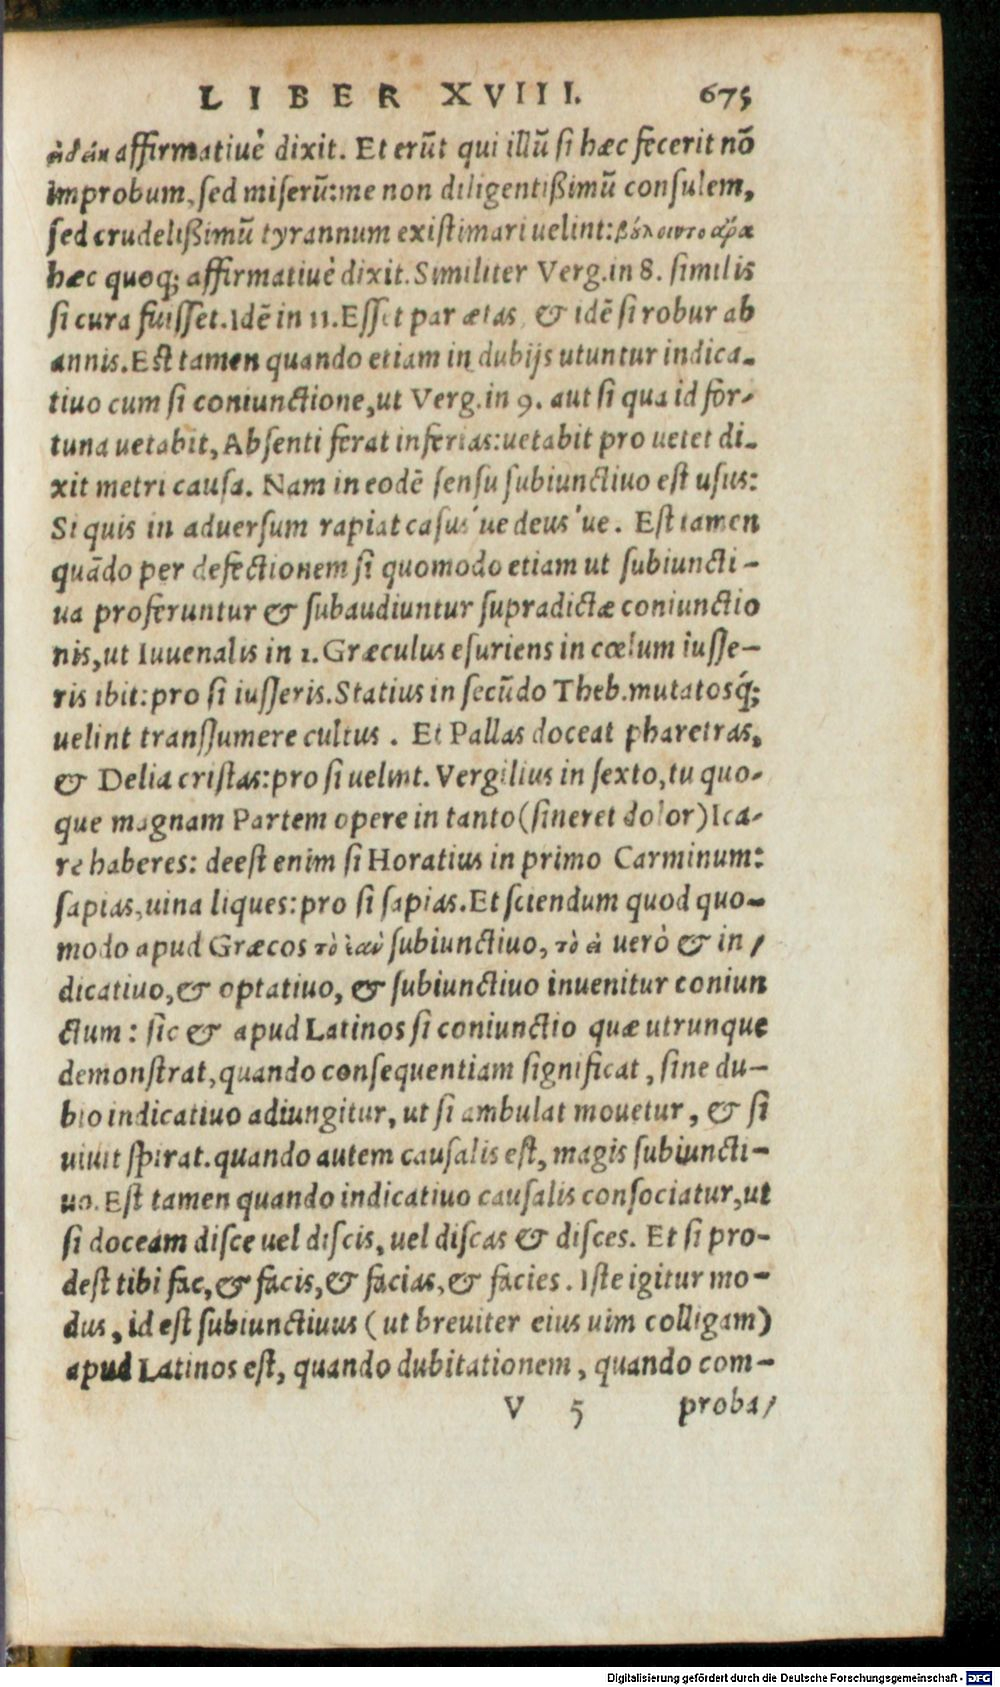 LIBER XVIII. 675
affirmatiuè dixit. Et erūt qui illū si hæc fecerit nō
improbum, sed miserū: me non diligentißimū consulem,
sed crudelißimū tyrannum existimari uelint: βόλοιντο ἄρα
hæc quoq; affirmatiuè dixit. Similiter Verg. in 8. similis
si cura fuisset. Idē in 11. Esset par ætas, & idē si robur ab
annis. Est tamen quando etiam in dubijs utuntur indica-
tiuo cum si coniunctione, ut Verg. in 9. aut si qua id for-
tuna uetabit, Absenti ferat inferias: uetabit pro uetet di-
xit metri causa. Nam in eodē sensu subiunctiuo est usus:
Si quis in aduersum rapiat casus'ue deus'ue. Est tamen
quādo per defectionem si quomodo etiam ut subiuncti-
ua proferuntur & subaudiuntur supradictæ coniunctio
nis, ut Iuuenalis in 1. Græculus esuriens in cœlum iusse-
ris ibit: pro si iusseris. Statius in secūdo Theb. mutatosq́;
uelint transsumere cultus. Et Pallas doceat pharetras,
& Delia cristas: pro si uelint. Vergilius in sexto, tu quo-
que magnam Partem opere in tanto (sineret dolor) Ica-
re haberes: deest enim si Horatius in primo Carminum:
sapias, uina liques: pro si sapias. Et sciendum quod quo-
modo apud Græcos τὸ ἐὰν subiunctiuo, τὸ εἰ uerò & in/
dicatiuo, & optatiuo, & subiunctiuo inuenitur coniun
ctum: sic & apud Latinos si coniunctio quæ utrunque
demonstrat, quando consequentiam significat, sine du-
bio indicatiuo adiungitur, ut si ambulat mouetur, & si
uiuit spirat. quando autem causalis est, magis subiuncti-
uo. Est tamen quando indicatiuo causalis consociatur, ut
si doceam disce uel discis, uel discas & disces. Et si pro-
dest tibi fac, & facis, & facias, & facies. Iste igitur mo-
dus, id est subiunctiuus (ut breuiter eius uim colligam)
apud Latinos est, quando dubitationem, quando com-
V 5 proba/
Digitalisierung gefördert durch die Deutsche Forschungsgemeinschaft - DFG